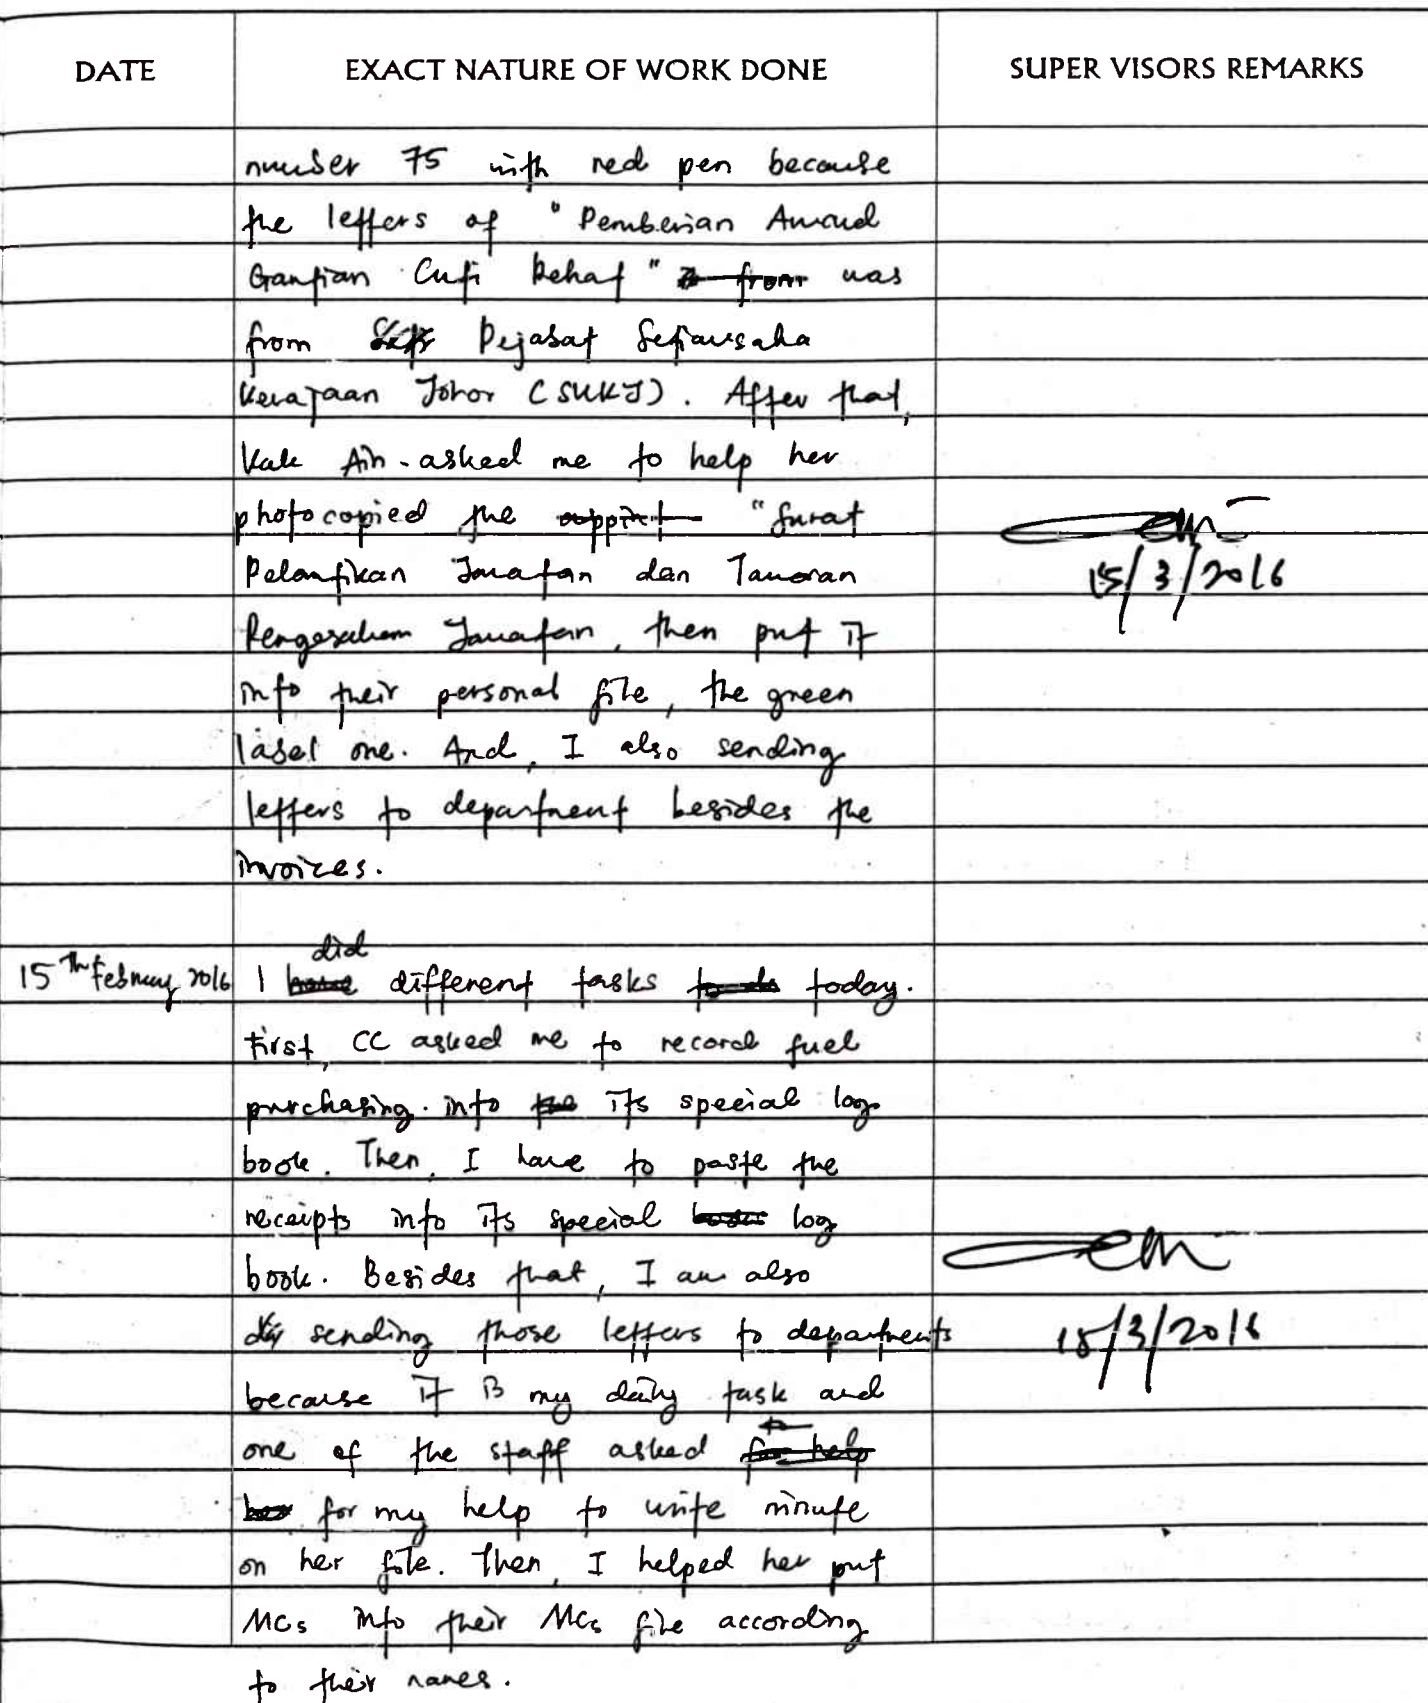 DATE EXACT NATURE OF WORK DONE SUPER VISORS REMARKS
number 75 with red pen because
the letters of "Pemberian Award
Gantian Cuti Rehat" was
from Pejabat Setiausaha
Kerajaan Johor (SUKJ). After that,
Kak Ain asked me to help her
photocopied the "Surat
Pelantikan Jawatan dan Tawaran
Pengesahan Jawatan, then put it
15/3/2016
into their personal file, the green
label one. And, I also sending
letters to department besides the
invoices.
15th February 2016 I did different tasks today.
First, CC asked me to record fuel
purchasing into its special log
book. Then, I have to paste the
receipts into its special log
book. Besides that, I am also
sending those letters to departments
15/3/2016
because it is my daily task and
one of the staff asked
for my help to write minute
on her file. Then, I helped her put
MCs into their MCs file according
to their names.